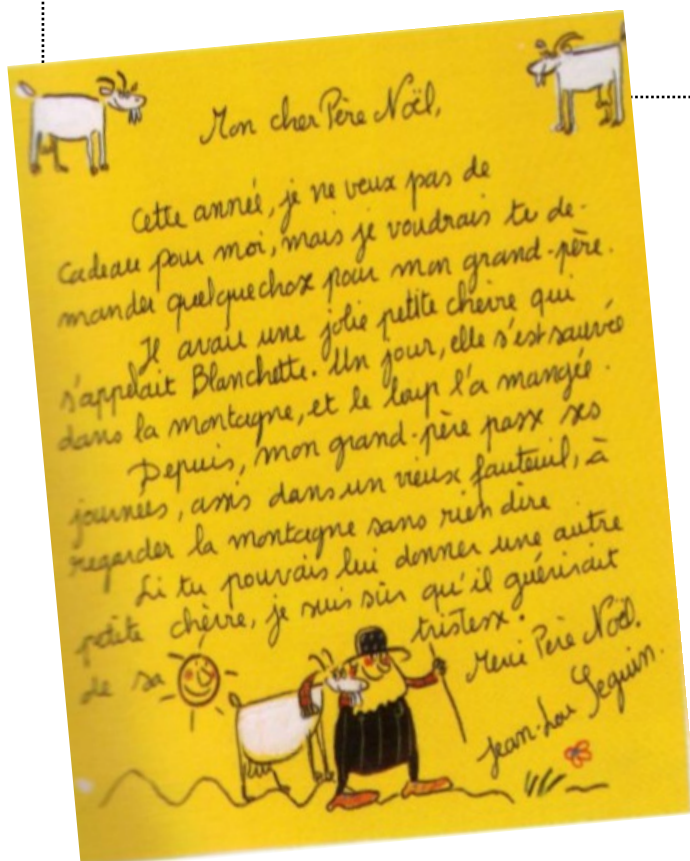 Mon cher Père Noël,
Cette année, je ne veux pas de
cadeau pour moi, mais je voudrais te de-
mander quelque chose pour mon grand-père.
Il avait une jolie petite chèvre qui
s'appelait Blanchette. Un jour, elle s'est sauvée
dans la montagne, et le loup l'a mangée.
Depuis, mon grand-père passe ses
journées, assis dans un vieux fauteuil, à
regarder la montagne sans rien dire.
Si tu pouvais lui donner une autre
petite chèvre, je suis sûr qu'il guérirait
de sa tristesse.
Merci Père Noël.
Jean-Lou Seguin.